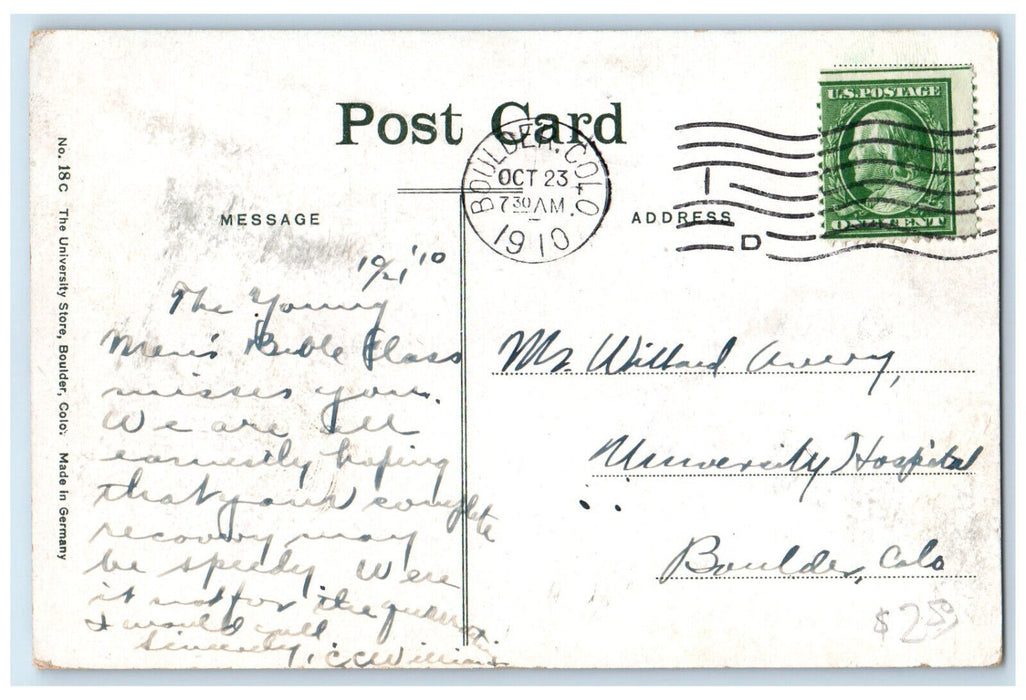 Post Card
BOULDER, COLO.
OCT 23
7 30 AM
1910
1
D
U.S. POSTAGE
ONE CENT
MESSAGE
ADDRESS
10/21 '10
The Young
Men's Bible Class
misses you.
We are all
earnestly hoping
that your complete
recovery may
be speedy. Were
it not for the
I would call
Sincerely, C C Williams
Mr. Willard Avery,
University Hospital
Boulder, Colo
$2.50
No. 18c The University Store, Boulder, Colo. Made in Germany